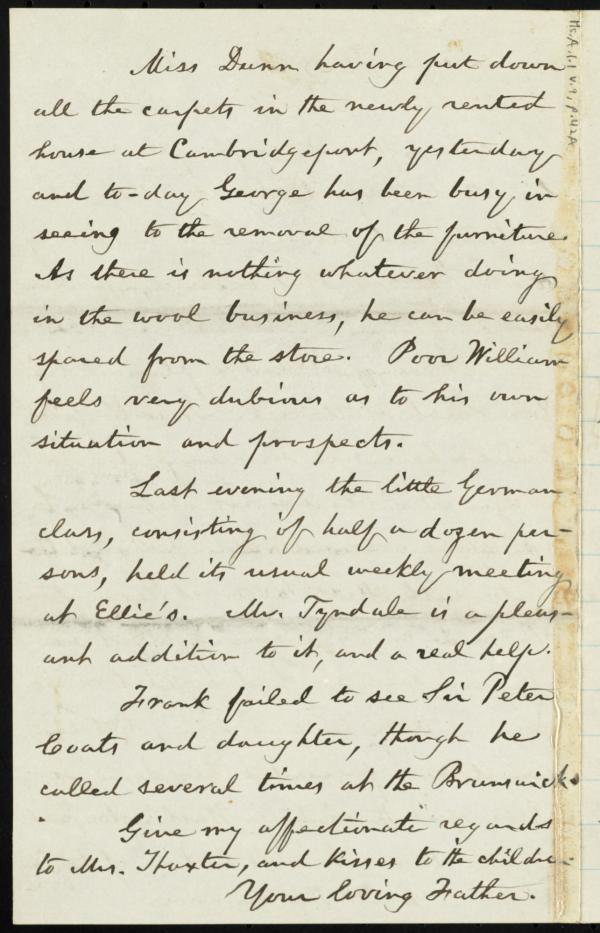 Miss Dunn having put down
all the carpets in the newly rented
house at Cambridgeport, yesterday
and to-day George has been busy in
seeing to the removal of the furniture.
As there is nothing whatever doing
in the wool business, he can be easily
spared from the store. Poor William
feels very dubious as to his own
situation and prospects.
Last evening the little German
class, consisting of half a dozen per-
sons, held its usual weekly meeting
at Ellie's. Mr. Tyndale is a pleas-
ant addition to it, and a real help.
Frank failed to see Sir Peter
Coats and daughter, though he
called several times at the Brunswick.
Give my affectionate regards
to Mrs. Thaxter, and kisses to the children.
Your loving Father.
Ms.A.1.1 v.9, p.42A